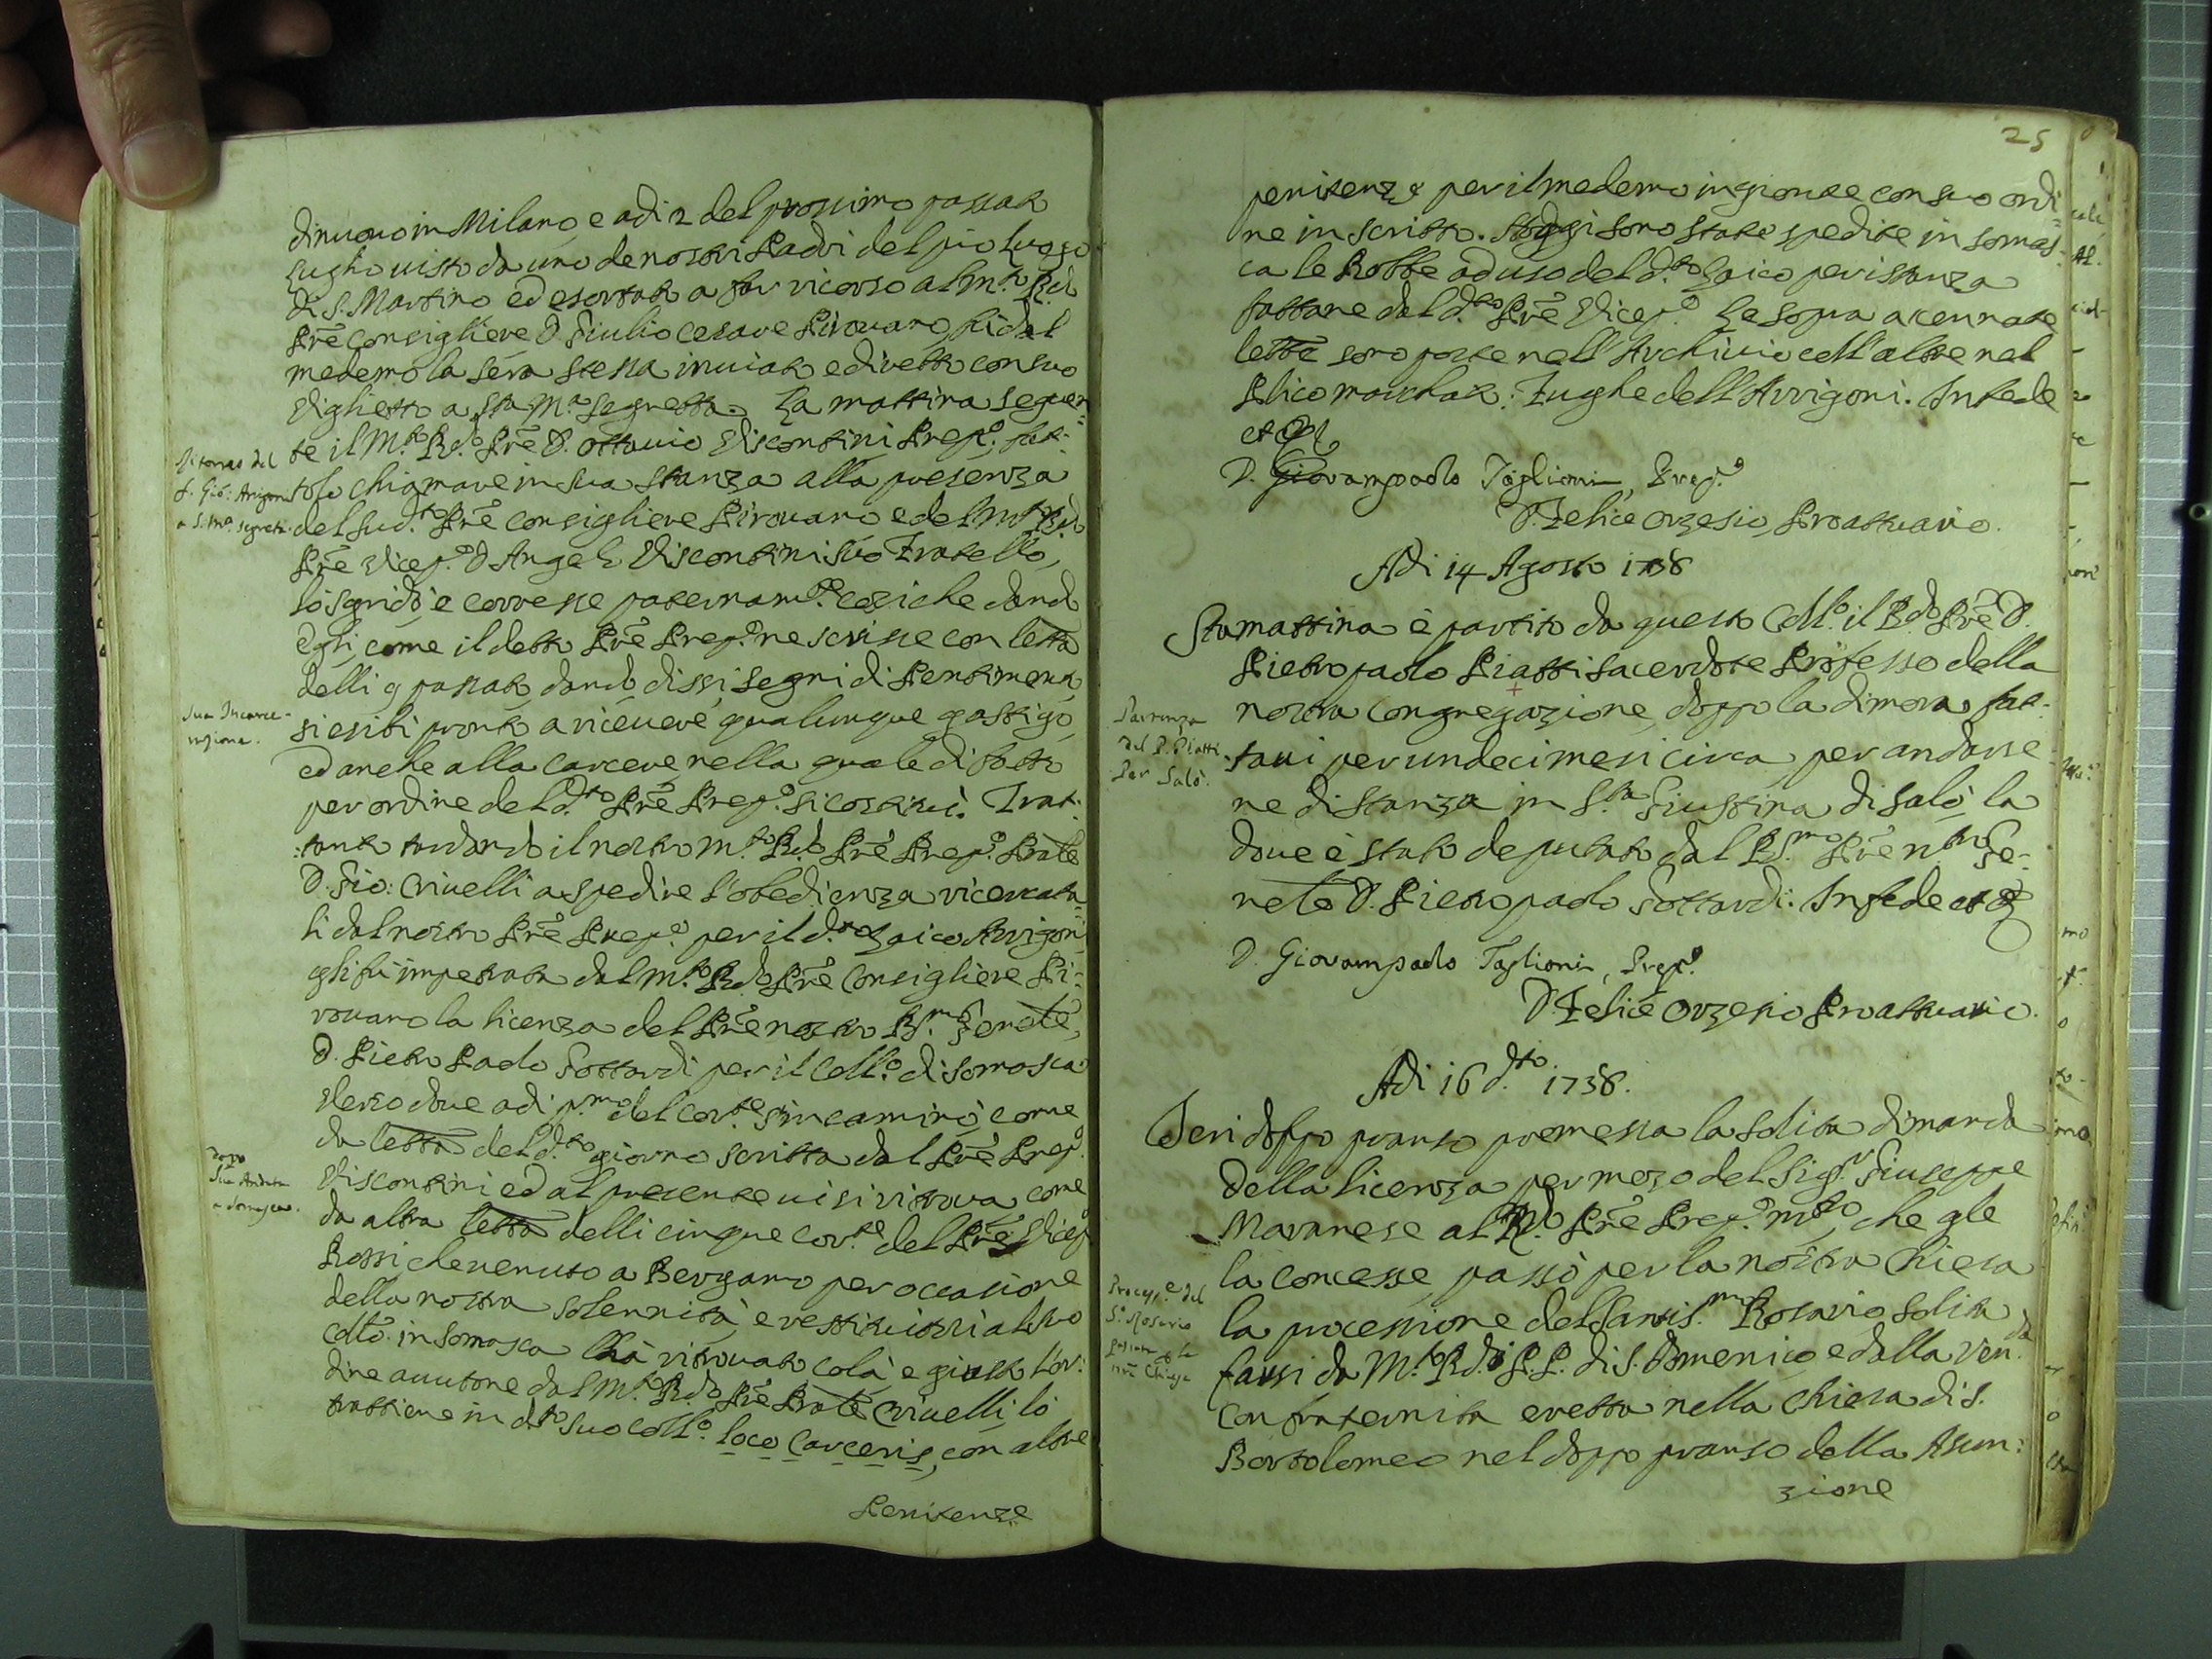 di nuovo in Milano, e adi 2 del prossimo passato
Luglio visto da uno de nostri Padri del pio Luogo
di S. Martino ed esortato a far ricorso al M.to R.do
Prē Consigliere D. Giulio Cesare Pirovano, fù dal
medemo la sera stessa inviato e diretto con suo
Viglietto a S.ta M.a Segretta. La mattina seguen=
te il M.to R.do Prē D. Ottavio Viscontini Prep.o fat=
Ritorno del
f. Gio: Arigoni
a S. M.a Segreta.
tolo chiamare in sua stanza alla presenza
del sud.to Prē Consigliere Pirovano e del M.to R.do
Prē Vicep.o D. Angelo Viscontini suo Fratello,
lo sgridò, e corresse paternam.te cosiche dando
egli, come il detto Prē Prep.o ne scrisse con letta
delli 9 passato, dando, dissi, segni di Pentimento
Sua Incarce-
razione.
si esibì pronto a ricevere qualunque gastigo,
ed anche alla Carcere, nella quale di fatto
per ordine del d.to Prē Prep.o si costituì. Frat=
tanto tardando il nostro M.to R.do Prē Prep.o Prāle
D. Gio: Crivelli a spedire l'obedienza ricercata=
li dal nostro Prē Prep.o per il d.to Laico Arrigoni
gli fù impetrata dal M.to R.do Prē Consigliere Pi=
rovano la licenza del Prē nostro R.mo Genēle,
D. Pietro Paolo Gottardi per il Coll.o di Somasca
Verso dove adi p.mo del cor.te s'incaminò, come
da letta del d.to giorno scritta dal Prē Prep.o
Sua Andata
a Somasca.
Viscontini ed al presente vi si ritrova come
da altra letta delli cinque cor.te del Prē Vicep.o
Rossi che venuto a Bergamo per occasione
della nostra solennità, e restituitosi al suo
Collo. in Somasca l'hà ritrovato colà e giusta l'or=
dine avutone dal M.to R.do Prē Prāle Crivelli, lo
trattiene in d.to suo Coll.o loco Carceris, con altre
Penitenze
25
penitenze per il medemo ingionte con suo ordi=
ne in scritto. Hoggi sono state spedite in Somas=
ca le Robbe ad uso del d.to Laico per istanza
fattane dal d.to Prē Vicep.o Le sopra acennate
lettē sono poste nell'Archivio coll'altre nel
Plico marchato: Fughe dell'Arrigoni. In fede
et
D. Giovampaolo Taglioni, Prep.o
D. Felice Orzesio, Proattuario.
Adi 14 Agosto 1738
Stamattina è partito da questo Coll.o il R.do Prē D.
Pietro paolo Piatti Sacerdote Professo della
nostra Congregazione, doppo la dimora fat=
Partenza
del P. Piatti
Per Salò.
tavi per undeci mesi circa, per andarse=
ne di stanza in S.ta Giustina di Salò, la
dove è stato deputato dal R.mo Prē n.tro Ge=
nele D. Pietro paolo Gottardi: In fede et
D. Giovampaolo Taglioni, Prep.o
D. Felice Orzesio Proattuario.
Adi 16 d.to 1738.
Ieri doppo pranso premessa la solita dimanda
della licenza per mezo del Sig.r Giuseppe
Maranese al R.do Prē Prep.o che gle
la concesse, passò per la nostra Chiesa
Process.e del
S.o Rosario
passata p la
nrā Chiesa
la processione del Santis.mo Rosario solita
farsi da M.to R.di P.P. di S. Domenico e dalla Ven.da
Confraternita eretta nella Chiesa di S.
Bortolomeo nel doppo pranso della Asun=
zione